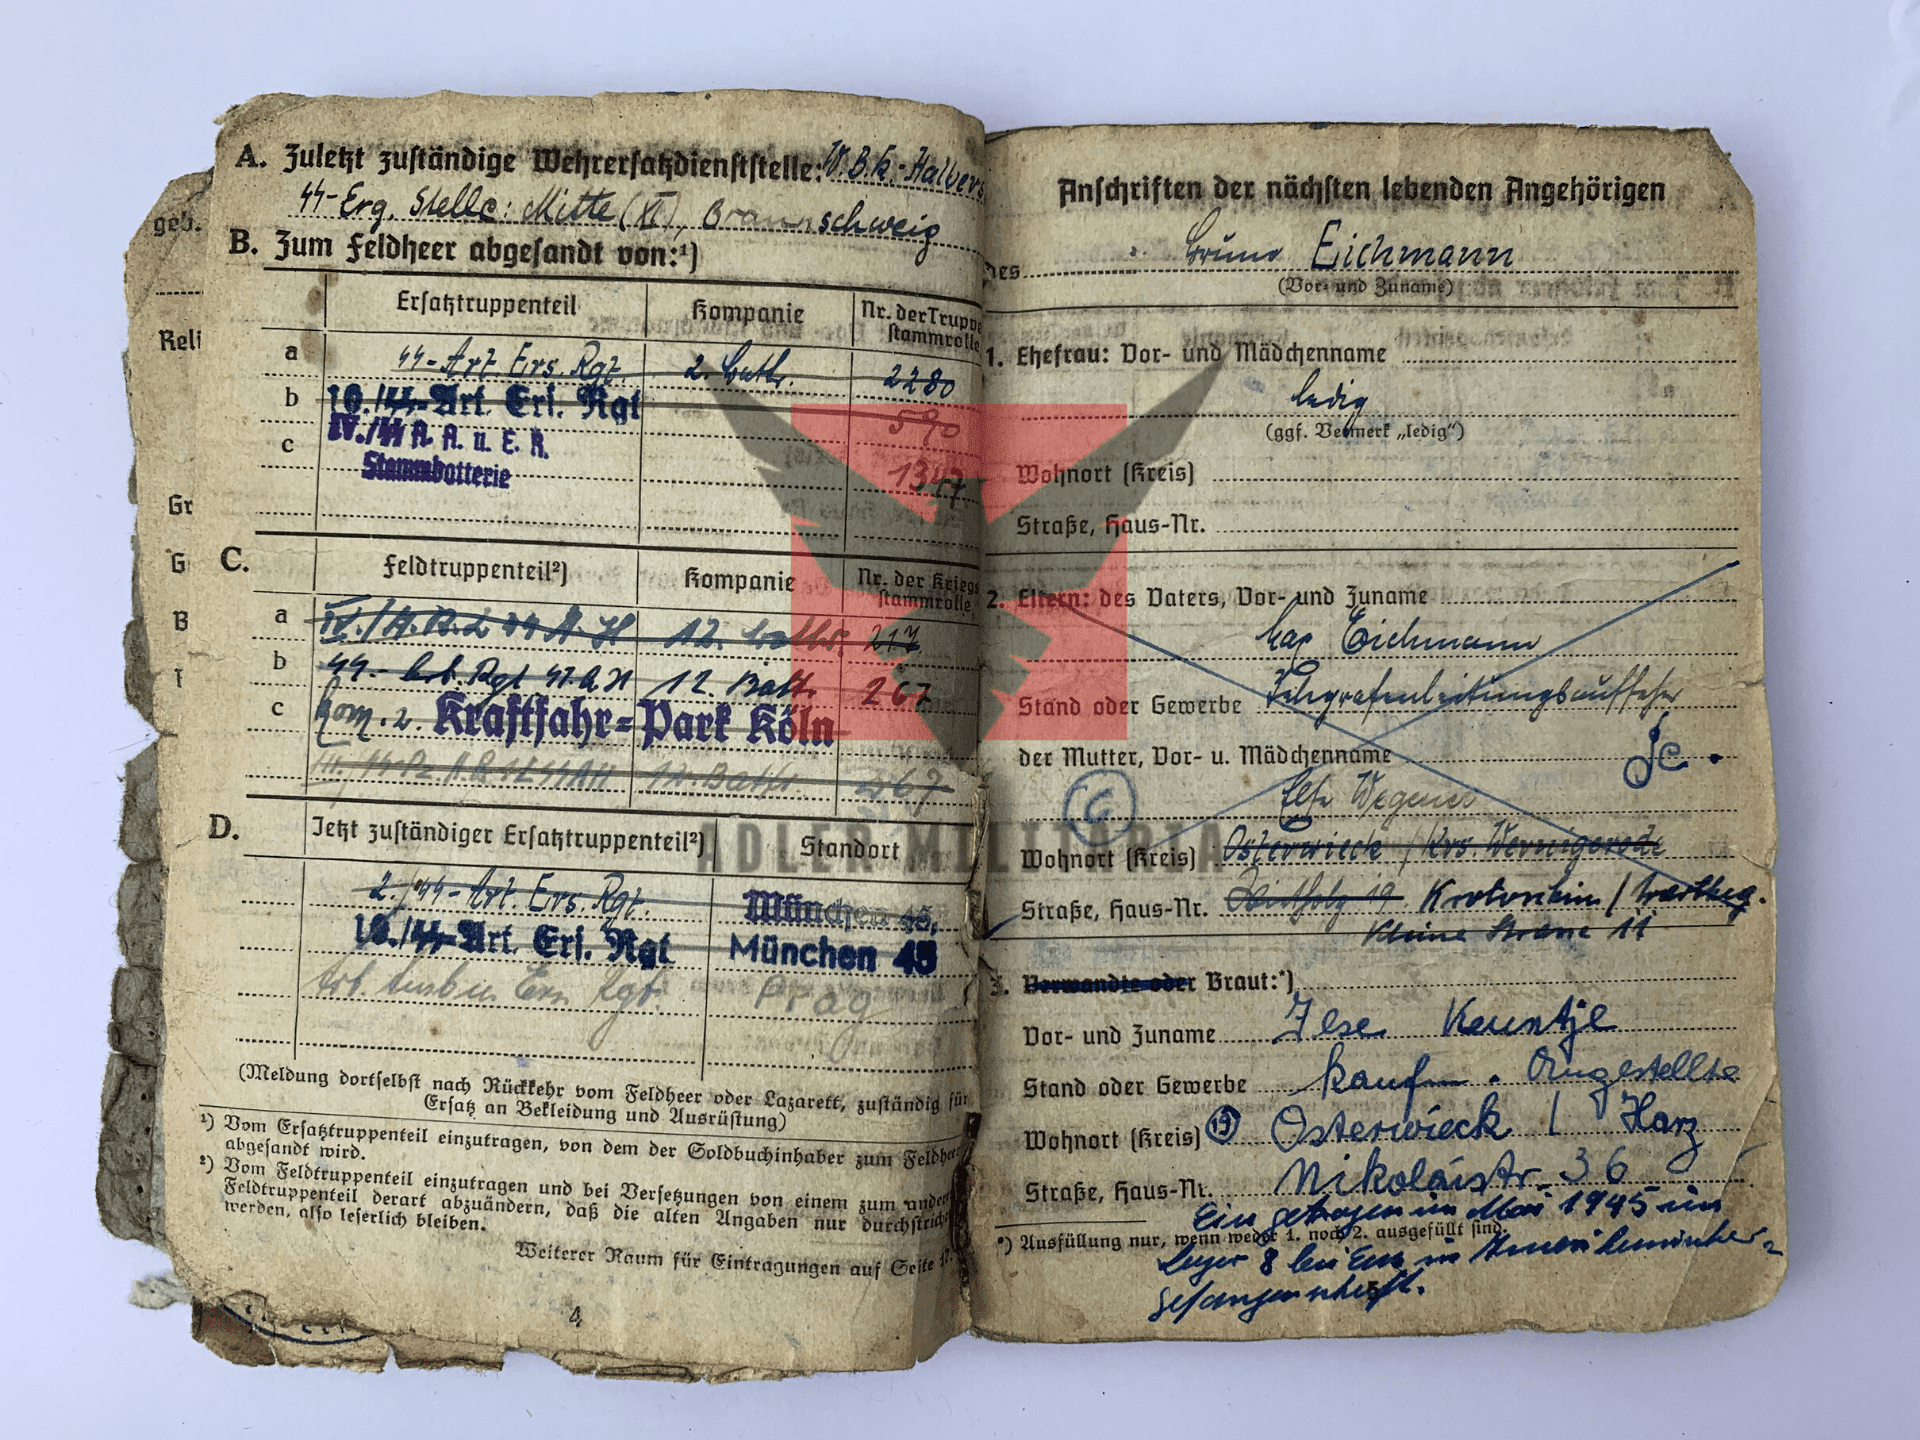 geb.
Reli
Gr
G
B
A. Zuletzt zuständige Wehrersatzdienststelle: W.B.K.-Halbers
ᛋᛋ-Erg. Stelle: Mitte (XI), Braunschweig
B. Zum Feldheer abgesandt von:¹)
Ersatztruppenteil Kompanie Nr. der Truppe
stammrolle
a ᛋᛋ-Art. Ers. Rgt. 2. Battr. 2280
b 10./ᛋᛋ-Art. Ers. Rgt 590
IV./ᛋᛋ A. A. u. E. R.
c Stammbatterie 1347
C. Feldtruppenteil²) Kompanie Nr. der Kriegs
stammrolle
a 12. 217
b ᛋᛋ- Rgt ᛋᛋ A H 12 Battr. 267
c Kom. z. Kraftfahr-Park Köln
12. Battr. 267
D. Jetzt zuständiger Ersatztruppenteil²) Standort
2./ᛋᛋ-Art. Ers. Rgt. München 45,
10./ᛋᛋ-Art. Ers. Rgt München 45
Ers. Rgt. Prag
(Meldung dortselbst nach Rückkehr vom Feldheer oder Lazarett, zuständig für
Ersatz an Bekleidung und Ausrüstung)
¹) Vom Ersatztruppenteil einzutragen, von dem der Soldbuchinhaber zum Feldheer
abgesandt wird.
²) Vom Feldtruppenteil einzutragen und bei Versetzungen von einem zum anderen
Feldtruppenteil derart abzuändern, daß die alten Angaben nur durchstrichen
werden, also leserlich bleiben.
Weiterer Raum für Eintragungen auf Seite 17.
4
Anschriften der nächsten lebenden Angehörigen
des Bruno Eichmann
(Vor- und Zuname)
1. Ehefrau: Vor- und Mädchenname
ledig
(ggf. Vermerk „ledig“)
Wohnort (Kreis)
Straße, Haus-Nr.
2. Eltern: des Vaters, Vor- und Zuname
Eichmann
Stand oder Gewerbe Telegrafenleitungsaufseher
der Mutter, Vor- u. Mädchenname
Wegener
6
Wohnort (Kreis) Osterwieck / Krs. Wernigerode
Straße, Haus-Nr. 19 Krotoschin / Wartheg.
Kleine Strasse 11
3. Verwandte oder Braut:*)
Vor- und Zuname Ilse Keuntje
Stand oder Gewerbe kaufm. Angestellte
Wohnort (Kreis) 19 Osterwieck / Harz
Straße, Haus-Nr. Nikolaistr. 36
Eingetragen im Mai 1945 im
*) Ausfüllung nur, wenn weder 1. noch 2. ausgefüllt sind.
Lager 8 bei in Amerikanischer-
gefangenschaft.
ADLER MILITARIA